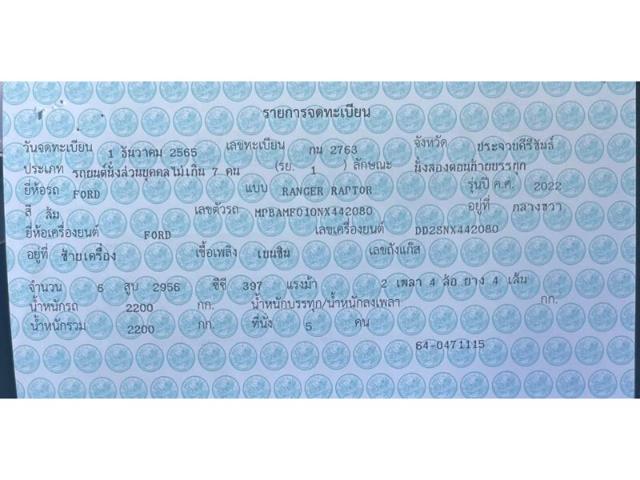 รายการจดทะเบียน
วันจดทะเบียน 1 ธันวาคม 2565 เลขทะเบียน กน 2763 จังหวัด ประจวบคีรีขันธ์
ประเภท รถยนต์นั่งส่วนบุคคลไม่เกิน 7 คน (รย. 1 ) ลักษณะ นั่งสองตอนท้ายบรรทุก
ยี่ห้อรถ FORD แบบ RANGER RAPTOR รุ่นปี ค.ศ. 2022
สี ส้ม เลขตัวรถ MPBAMF010NX442080 อยู่ที่ กลางขวา
ยี่ห้อเครื่องยนต์ FORD เลขเครื่องยนต์ DD2SNX442080
อยู่ที่ ซ้ายเครื่อง เชื้อเพลิง เบนซิน เลขถังแก๊ส
จำนวน 6 สูบ 2956 ซีซี 397 แรงม้า 2 เพลา 4 ล้อ ยาง 4 เส้น
น้ำหนักรถ 2200 กก. น้ำหนักบรรทุก/น้ำหนักลงเพลา กก.
น้ำหนักรวม 2200 กก. ที่นั่ง 5 คน
64-0471115